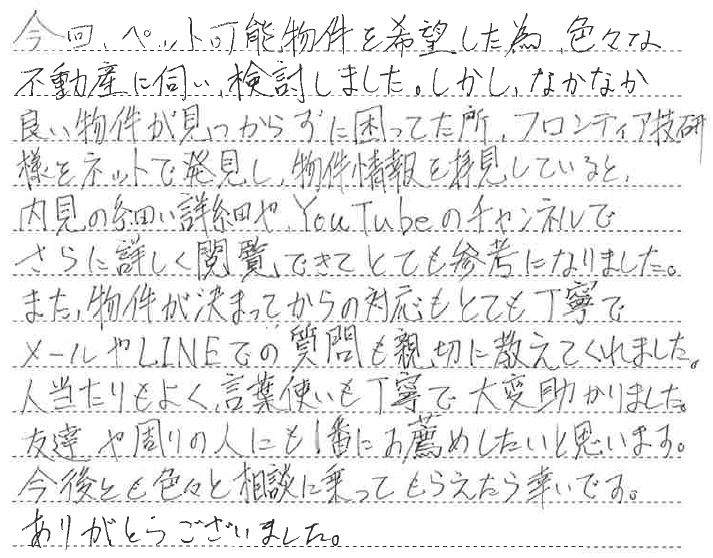 今回、ペット可能物件を希望した為、色々な
不動産に伺い、検討しました。しかし、なかなか
良い物件が見つからずに困ってた所、フロンティア技研
様をネットで発見し、物件情報を拝見していると、
内見の細い詳細や、YouTubeのチャンネルで
さらに詳しく閲覧できてとても参考になりました。
また、物件が決まってからの対応もとても丁寧で
メールやLINEでの質問も親切に教えてくれました。
人当たりもよく、言葉使いも丁寧で大変助かりました。
友達や周りの人にも1番にお薦めしたいと思います。
今後とも色々と相談に乗ってもらえたら幸いです。
ありがとうございました。